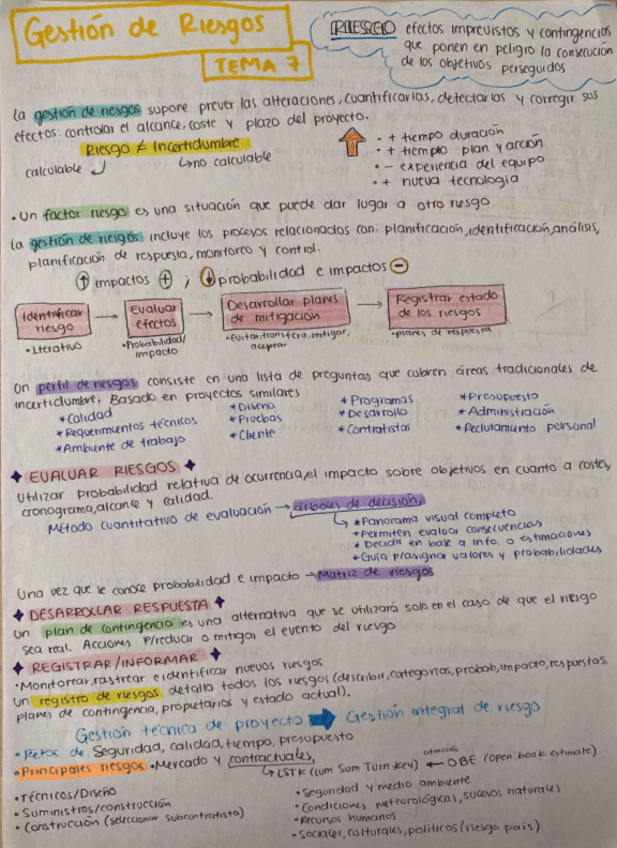 Gestión de Riesgos
TEMA 7
RIESGO efectos imprevistos y contingencias
que ponen en peligro la consecución
de los objetivos perseguidos
La gestión de riesgos supone prever las alteraciones, cuantificarlas, detectarlas y corregir sus
efectos: controlar el alcance, coste y plazo del proyecto.
Riesgo ≠ Incertidumbre
calculable
no calculable
· + tiempo duración
· + tiempo plan y acción
· - experiencia del equipo
· + nueva tecnología
· Un factor riesgo es una situación que puede dar lugar a otro riesgo
La gestión de riesgos incluye los procesos relacionados con: planificación, identificación, análisis,
planificación de respuesta, monitoreo y control.
↑ impactos + ; ↓ probabilidad e impactos -
Identificar riesgo → Evaluar efectos → Desarrollar planes de mitigación → Registrar estado de los riesgos
· Iterativo
· Probabilidad/ impacto
· Evitar, transferir, mitigar, aceptar
· planes de respuesta
Un perfil de riesgos consiste en una lista de preguntas que cubren áreas tradicionales de
incertidumbre. Basado en proyectos similares
* Calidad
* Requerimientos técnicos
* Ambiente de trabajo
* Diseño
* Pruebas
* Cliente
* Programas
* Desarrollo
* Contratistas
* Presupuesto
* Administración
* Reclutamiento personal
EVALUAR RIESGOS
Utilizar probabilidad relativa de ocurrencia, el impacto sobre objetivos en cuanto a costes,
cronograma, alcance y calidad.
Método cuantitativo de evaluación → árboles de decisión,
* Panorama visual completo
* Permiten evaluar consecuencias
* Decidir en base a info. o estimaciones
* Guía p/asignar valores y probabilidades
Una vez que se conoce probabilidad e impacto → Matriz de riesgos
DESARROLLAR RESPUESTA
Un plan de contingencia es una alternativa que se utilizará solo en el caso de que el riesgo
sea real. Acciones p/reducir o mitigar el evento del riesgo
REGISTRAR/INFORMAR
· Monitorear, rastrear e identificar nuevos riesgos
Un registro de riesgos detalla todos los riesgos (describir, categorías, probab, impacto, respuestas,
planes de contingencia, propietarios y estado actual).
Gestión técnica de proyecto → Gestión integral de riesgo
· Retos de Seguridad, calidad, tiempo, presupuesto
· Principales riesgos · Mercado y contractuales,
LSTK (Lum Sum Turn Key) ← OBE (open book estimate)
· Técnicos/Diseño
· Suministros/construcción
· Construcción (seleccionar subcontratista)
· Seguridad y medio ambiente
· Condiciones meteorológicas, sucesos naturales
· Recursos humanos
· Sociales, culturales, políticos (riesgo país)